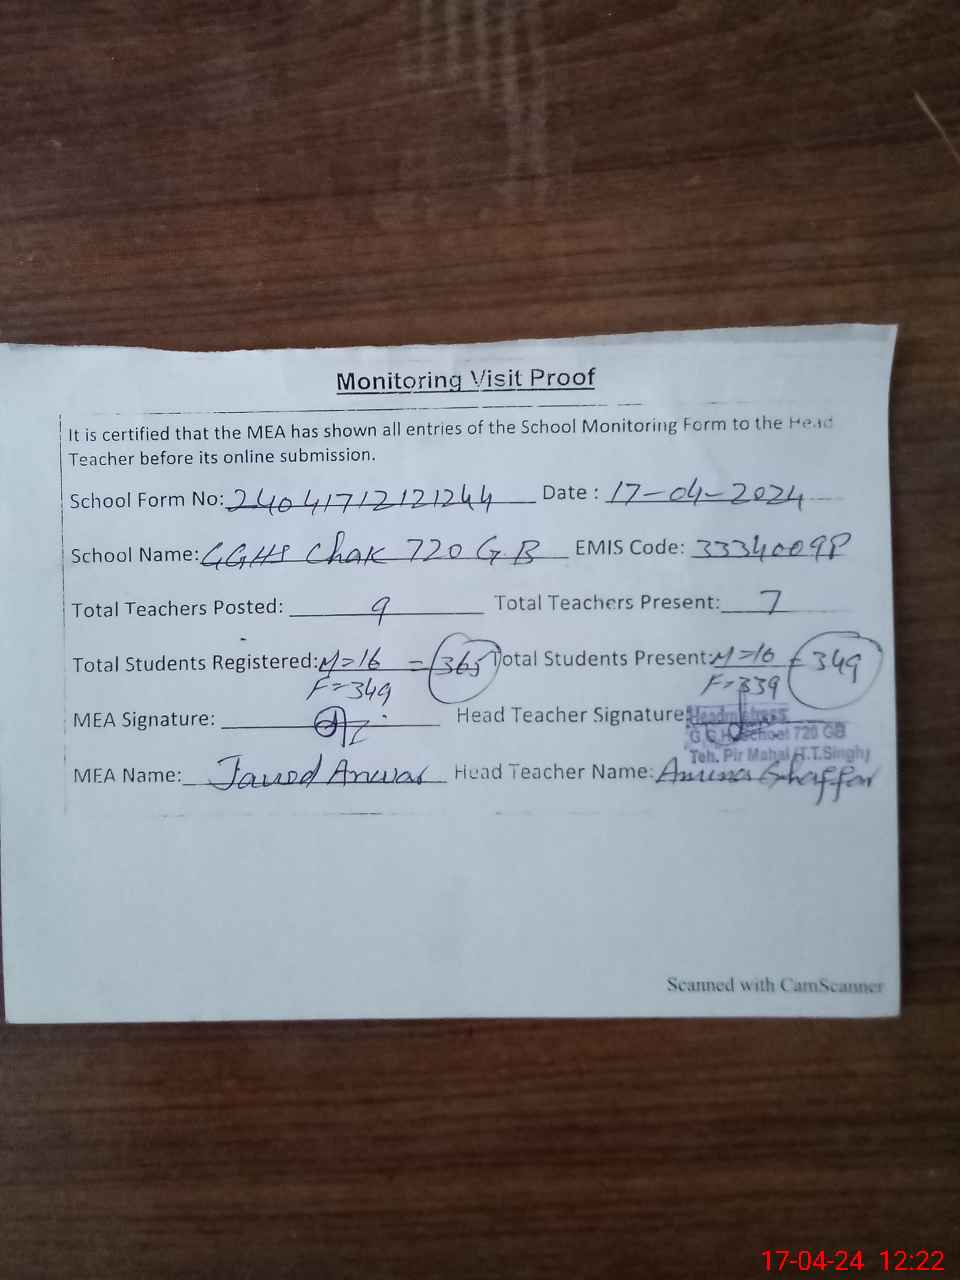 Monitoring Visit Proof
It is certified that the MEA has shown all entries of the School Monitoring Form to the Head
Teacher before its online submission.
School Form No: 24041712121244 Date : 17-04-2024
School Name: GGHS Chak 720 GB EMIS Code: 33340098
Total Teachers Posted: 9 Total Teachers Present: 7
Total Students Registered: M=16 = 365 Total Students Present: M=10 = 349
F=349 F=339
MEA Signature: Head Teacher Signature: Headmistress
G G H School 720 GB
Teh. Pir Mahal (T.T.Singh)
MEA Name: Javed Anwar Head Teacher Name: Amina Ghaffar
Scanned with CamScanner
17-04-24 12:22